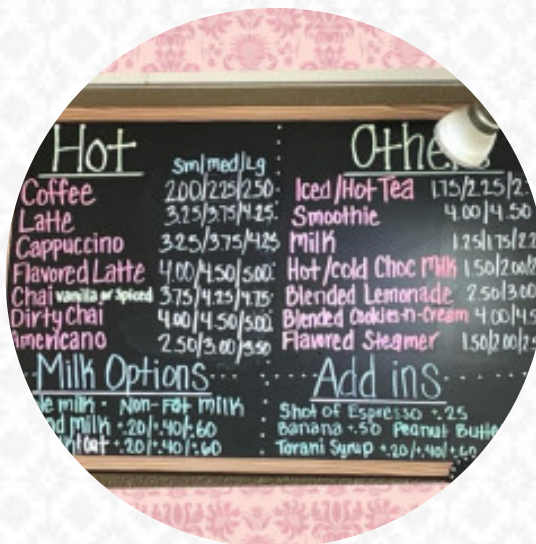 Hot
Sm/med/Lg
Coffee 2.00/2.25/2.50
Latte 3.25/3.75/4.25
Cappuccino 3.25/3.75/4.25
Flavored Latte 4.00/4.50/5.00
Chai vanilla or Spiced 3.75/4.25/4.75
Dirty Chai 4.00/4.50/5.00
Americano 2.50/3.00/3.50
Milk Options
milk · Non-Fat milk
milk +.20/+.40/+.60
oat +.20/+.40/+.60
Iced/Hot Tea 1.75/2.25/
Smoothie 4.00/4.50
Milk 1.25/1.75/
Hot/cold Choc Milk 1.50/2.00/
Blended Lemonade 2.50/3.00
Blended Cookies-n-Cream 4.00/
Flavored Steamer 1.50/2.00/
Add ins
Shot of Espresso +.25
Banana +.50 Peanut
Torani Syrup +.20/+.40/+.60